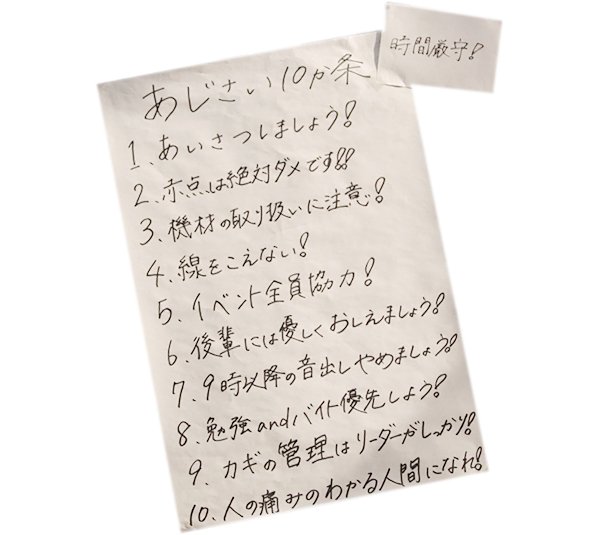 時間厳守!
あじさい10か条
1、あいさつしましょう!
2、赤点は絶対ダメです!!
3、機材の取り扱いに注意!
4、線をこえない!
5、イベント全員協力!
6、後輩には優しくおしえましょう!
7、9時以降の音出しやめましょう!
8、勉強andバイト優先しよう!
9、カギの管理はリーダーがしっかり!
10、人の痛みのわかる人間になれ!